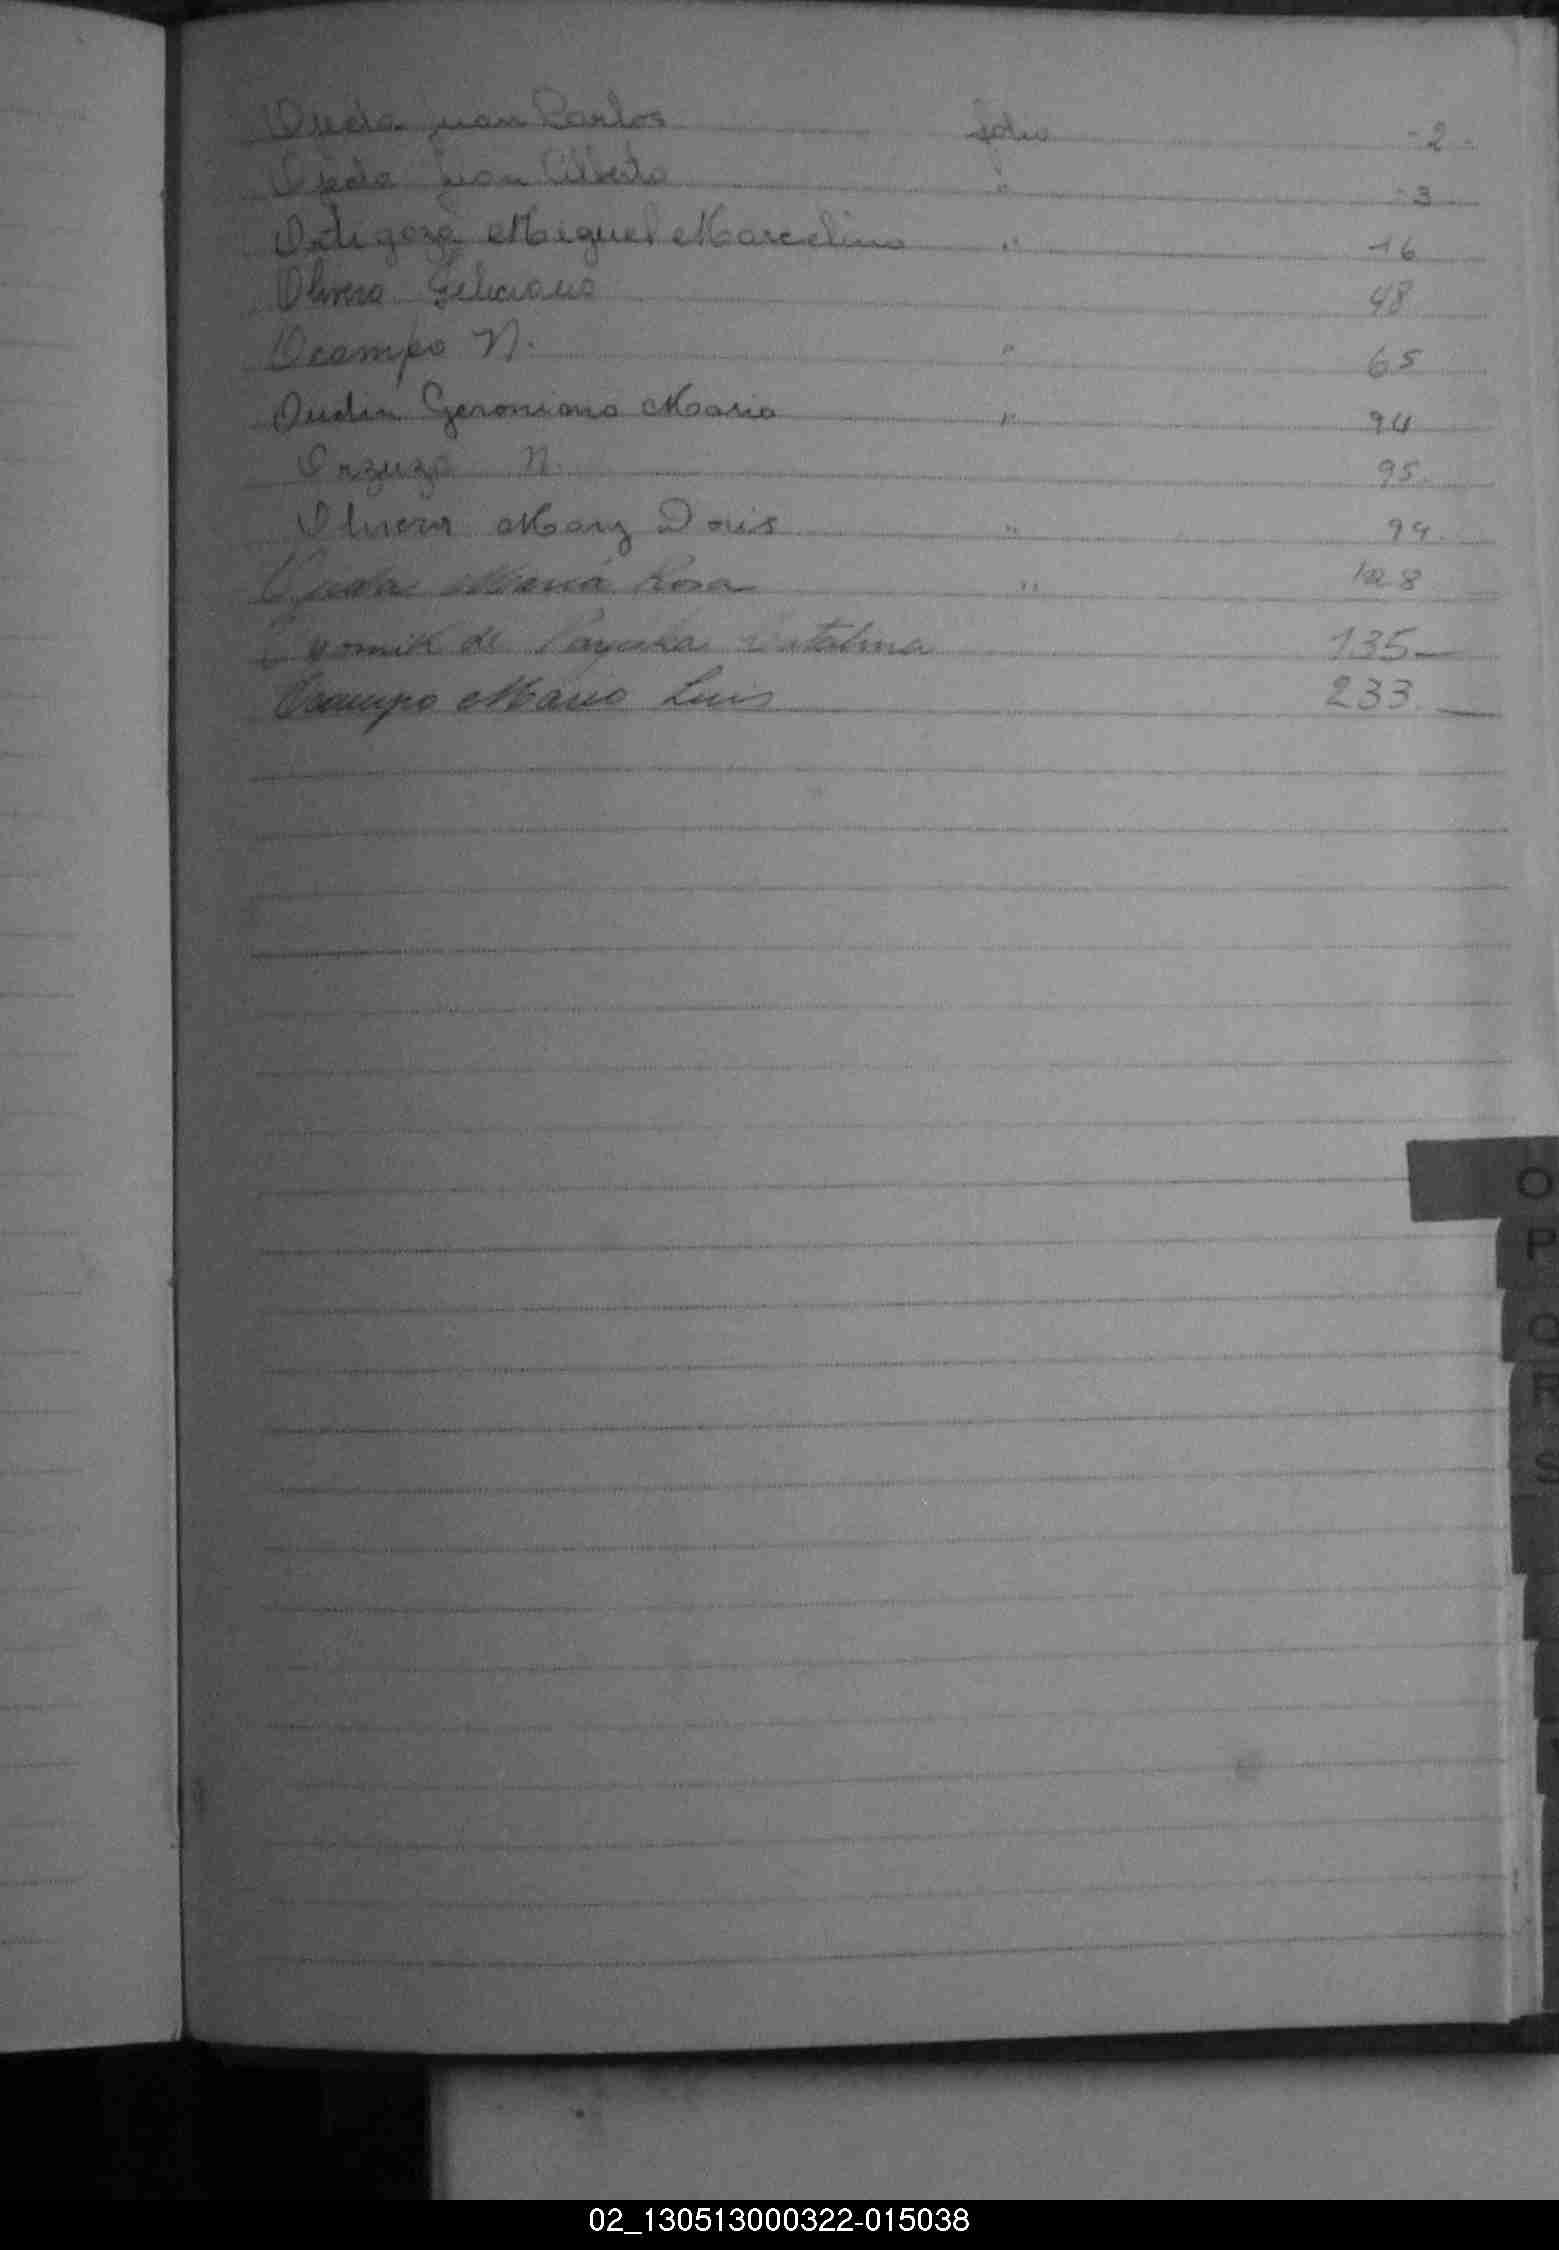 Ojeda Juan Carlos folio -2-
Ojeda Juan Alberto " -3
Ortigoza Miguel Marcelino " 16
Olivera Feliciano 48
Ocampo N. " 65
Oudin Geronimo Mario " 94
Orzuza N. 95.
Olivera Mary Doris " 94.
Ojeda María Rosa " 128
de Catalina 135
Ocampo Mario Luis 233
O
P
Q
R
S
02_130513000322-015038